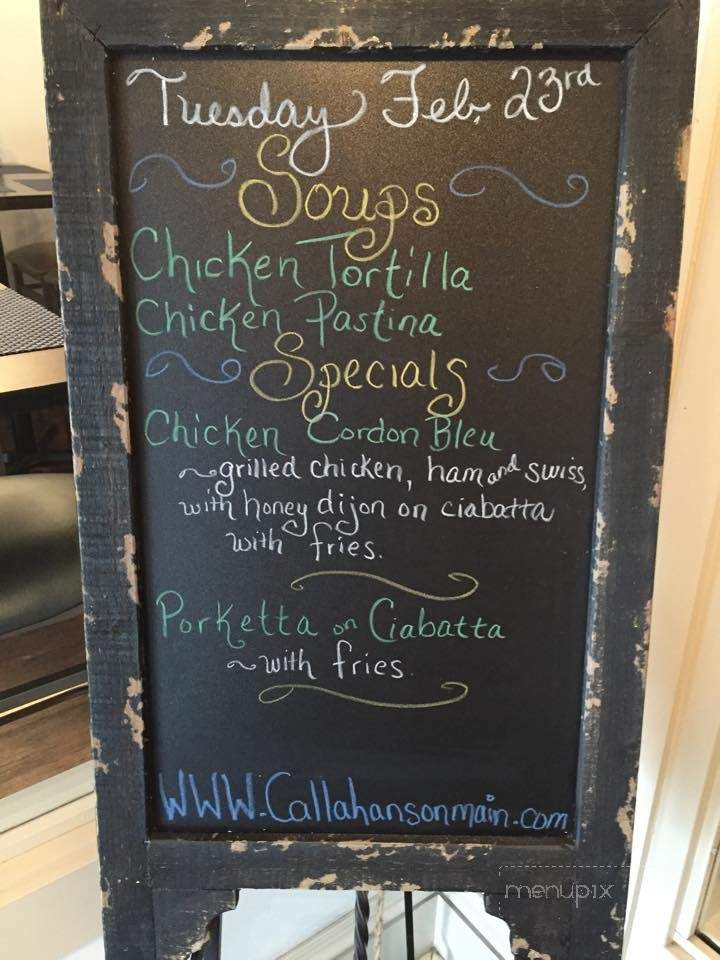 Tuesday Feb. 23rd
Soups
Chicken Tortilla
Chicken Pastina
Specials
Chicken Cordon Bleu
~grilled chicken, ham and swiss,
with honey dijon on ciabatta
with fries.
Porketta on Ciabatta
~with fries.
WWW.Callahansonmain.com
menupix